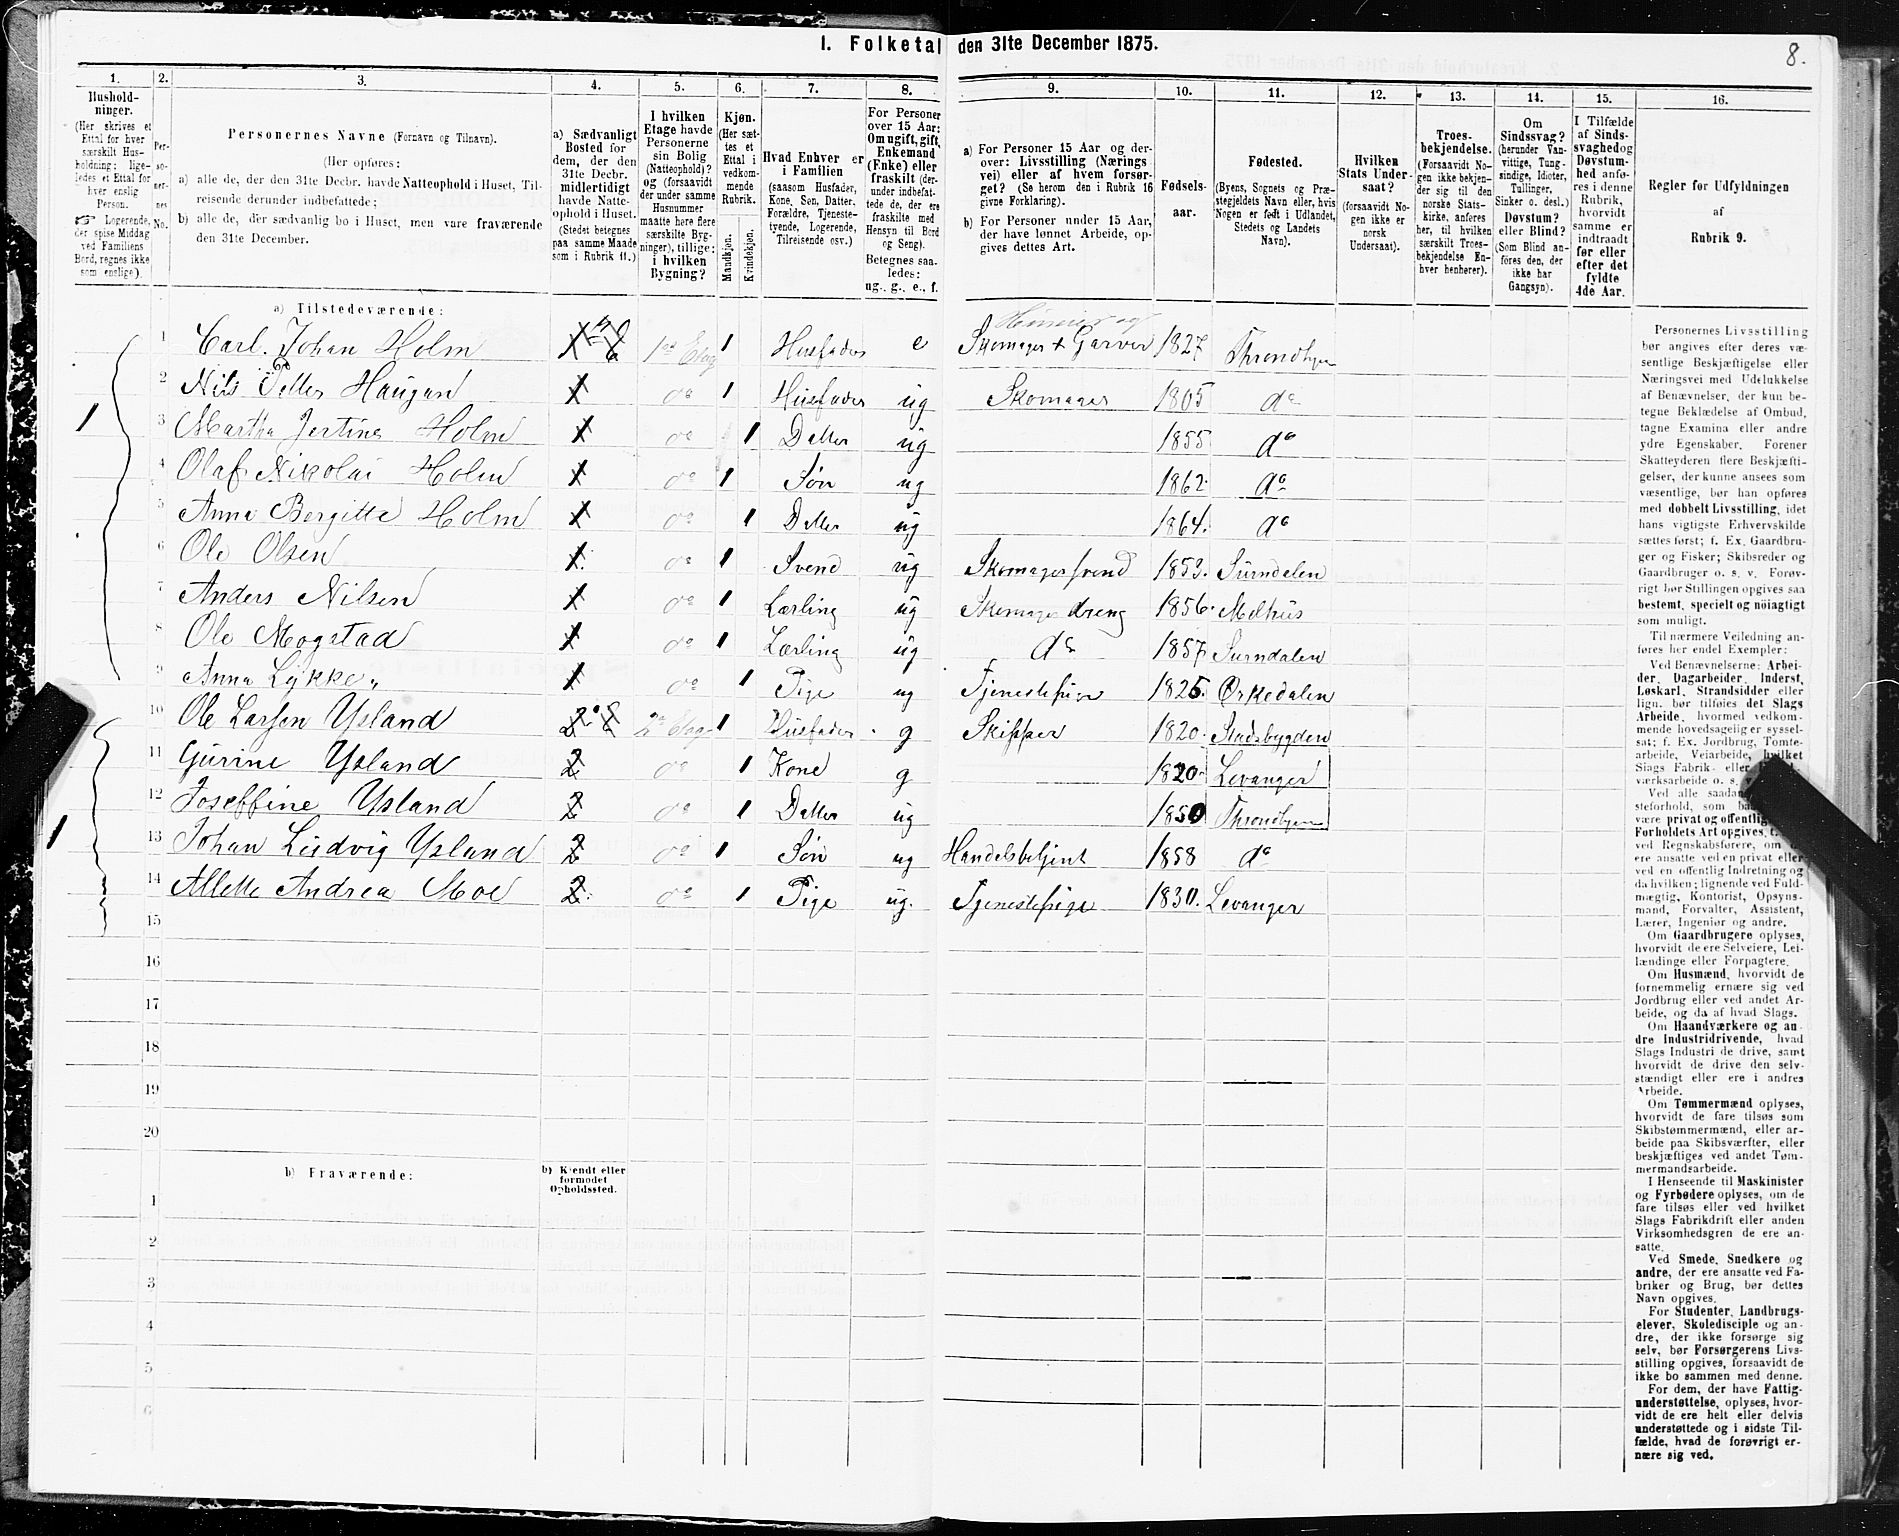 8.
I. Folketal den 31te December 1875.
1. 2. 3. 4. 5. 6. 7. 8. 9. 10. 11. 12. 13. 14. 15. 16.
Hushold-
ninger.
(Her skrives et
Ettal for hver
særskilt Hus-
holdning; lige-
ledes et Ettal for
hver enslig
Person.
☞ Logerende,
der spise Middag
ved Familiens
Bord, regnes ikke
som enslige).
Per-
so-
ner-
nes
No.
Personernes Navne (Fornavn og Tilnavn).
(Her opføres:
a) alle de, der den 31te Decbr. havde Natteophold i Huset, Til-
reisende derunder indbefattede;
b) alle de, der sædvanlig bo i Huset, men vare fraværende
den 31te December.
a) Sædvanligt
Bosted for
dem, der den
31te Decbr.
midlertidigt
havde Natte-
ophold i Huset.
(Stedet betegnes
paa samme Maade
som i Rubrik 11.)
I hvilken
Etage havde
Personerne
sin Bolig
(Natteophold)?
og (forsaavidt
der under samme
Husnummer
maatte høre flere
særskilte Byg-
ninger), tillige:
i hvilken
Bygning?
Kjøn.
(Her sæt-
tes et
Ettal i
vedkom-
mende
Rubrik.
Mandkjøn.
Kvindekjøn.
Hvad Enhver er
i Familien
(saasom Husfader,
Kone, Søn, Datter,
Forældre, Tjeneste-
tyende, Logerende,
Tilreisende osv.)
For Personer
over 15 Aar:
Om ugift, gift,
Enkemand
(Enke) eller
fraskilt (der-
under indbefat-
tede de, der ere
fraskilte med
Hensyn til Bord
og Seng).
Betegnes saa-
ledes:
ug., g., e., f.
a) For Personer 15 Aar og der-
over: Livsstilling (Nærings
vei) eller af hvem forsør-
get? (Se herom den i Rubrik 16
givne Forklaring).
b) For Personer under 15 Aar,
der have lønnet Arbeide, op-
gives dettes Art.
Fødsels-
aar.
Fødested.
(Byens, Sognets og Præ-
stegjeldets Navn eller, hvis
Nogen er født i Udlandet,
Stedets og Landets
Navn).
Hvilken
Stats Under-
saat?
(forsaavidt No-
gen ikke er
norsk
Undersaat).
Troes-
bekjendelse.
(Forsaavidt No-
gen ikke bekjen-
der sig til den
norske Stats-
kirke, anføres
her, til hvilken
særskilt Troes-
bekjendelse En-
hver henhører).
Om
Sindssvag?
(herunder Van-
vittige, Tung-
sindige, Idioter,
Tullinger,
Sinker o. desl.)
Døvstum?
eller Blind?
(Som Blind an-
føres den, der
ikke har
Gangsyn).
I Tilfælde
af Sinds-
svaghed og
Døvstum-
hed anfø-
res i denne
Rubrik,
hvorvidt
samme er
indtraadt
før eller
efter det
fyldte
4de Aar.
Regler før Udfyldningen
af
Rubrik 9.
a) Tilstedeværende:
1 Carl. Johan Holm 1 Husfader e Skomager + Garver 1827 Throndhjem
2 Nils Petter Haugan do 1 Husfader ug Skomager 1805 do
3 Martha Jertine Holm do 1 Datter ug 1855 do
4 Olaf Nikolai Holm do 1 Søn ug 1862 do
5 Anna Bergitte Holm do 1 Datter ug 1864. do
6 Ole Olsen do 1 Svend ug Skomagersvend 1853. Surndalen
7 Anders Nilsen do 1 Lærling ug Skomagerdreng 1856. Melhus
8 Ole Mogstad do 1 Lærling ug do 1857 Surndalen
9 Anna Lykke do 1 Pige ug Tjenestepige 1825. Ørkedalen
10 Ole Larsen Ysland 2 2 Etage 1 Husfader g Skipper 1820. Stadsbygden
11 Gurine Ysland 2 do 1 Kone g 1820 Levanger
12 Joseffine Ysland 2 do 1 Datter ug 1850 Throndhjem
13 Johan Ludvig Ysland 2 do 1 Søn ug Handelsbetjent 1858 do
14 Allette Andrea Moe 2 do 1 Pige ug. Tjenestepige 1830. Levanger
15
16
17
18
19
20
b) Fraværende:
b) Kjendt eller
formodet
Opholdssted.
1
2
3
4
5
6
Personernes Livsstilling
bør angives efter deres væ-
sentlige Beskjæftigelse eller
Næringsvei med Udelukkelse
af Benævnelser, der kun be-
tegne Beklædelse af Ombud,
tagne Examina eller andre
ydre Egenskaber. Forener
Skatteyderen flere Beskjæfti-
gelser, der kunne ansees som
væsentlige, bør han opføres
med dobbelt Livsstilling, idet
hans vigtigste Erhvervskilde
sættes først; f. Ex. Gaardbru-
ger og Fisker; Skibsreder og
Gaardbruger o. s. v. Forøv-
rigt bør Stillingen opgives saa
bestemt, specielt og nöiagtigt
som muligt.
Til nærmere Veiledning an-
føres her endel Exempler:
Ved Benævnelserne: Arbei-
der, Dagarbeider, Inderst,
Løskarl, Strandsidder eller
lign. bør tilføies det Slags
Arbeide, hvormed vedkom-
mende hovedsagelig er syssel-
sat; f. Ex. Jordbrug, Tomte-
arbeide, Veiarbeide, hvilket
Slags Fabrik- eller
værksarbeide o. s. v.
Ved alle
steforhold, som
være privat og offentlig,
Forholdets Art opgives,
ved Regnskabsførere, om
ere ansatte ved en privat eller
ved en offentlig Indretning og
da hvilken; lignende ved Fuld-
mægtig, Kontorist, Opsyns-
mand, Forvalter, Assistent,
Lærer, Ingeniør og andre.
Om Gaardbrugere oplyses,
hvorvidt de ere Selveiere, Lei-
lændinge eller Forpagtere.
Om Husmænd, hvorvidt de
fornemmelig ernære sig ved
Jordbrug eller ved andet Ar-
beide, og da af hvad Slags.
Om Haandværkere og an-
dre industridrivende, hvad
Slags Industri de drive, samt
hvorvidt de drive den selv-
stændigt eller ere i andres
Arbeide.
Om Tømmermænd oplyses,
hvorvidt de fare tilsøs som
Skibstømmermænd, eller ar-
beide paa Skibsværfter, eller
beskjæftiges ved andet Tøm-
mermandsarbeide.
I Henseende til Maskinister
og Fyrbødere oplyses, om de
fare tilsøs eller ved hvilket
Slags Fabrikdrift eller anden
Virksomhedsgren de ere an-
satte.
Ved Smede, Snedkere og
andre, der ere ansatte ved Fa-
briker og Brug, bør dettes
Navn opgives.
For Studenter, Landbrugs-
elever, Skoledisciple og an-
dre, der ikke forsørge sig
selv, bør Forsørgerens Livs-
stilling opgives, forsaavidt de
ikke bo sammen med denne.
For dem, der have Fattig-
understøttelse, oplyses, hvor-
vidt de ere helt eller delvis
understøttede og i sidste Til-
fælde, hvad de forøvrigt er-
nære sig ved.